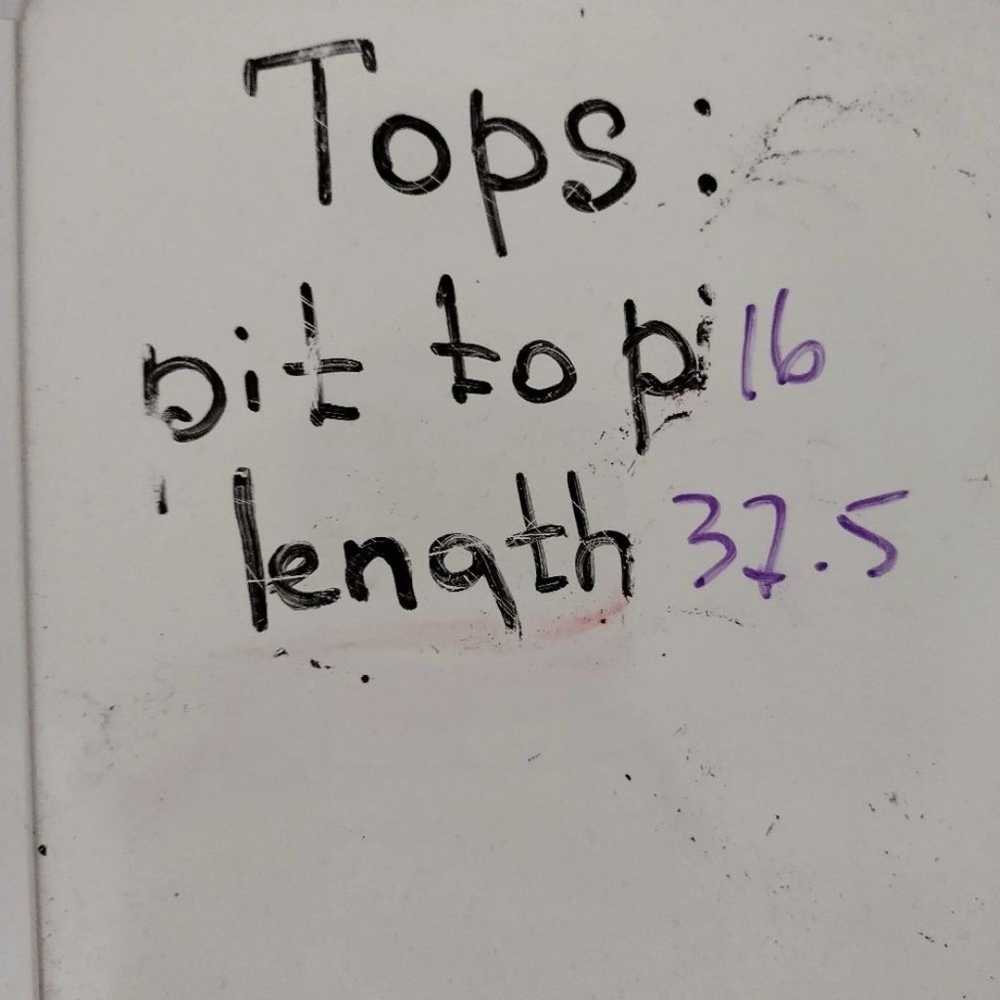 Tops:
pit to pi 16
length 37.5